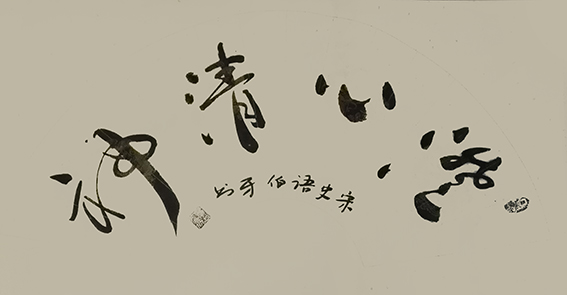 心清神
宋史语 伯牙书